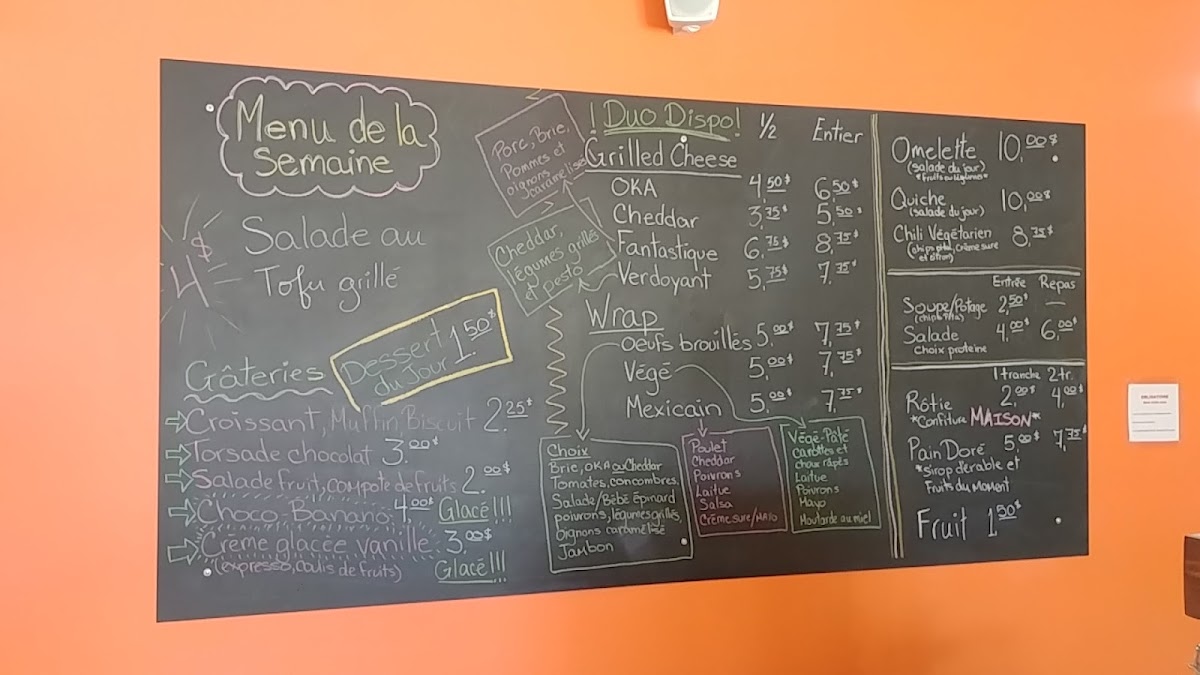 Menu de la
Semaine
Salade au
Tofu grillé
4$
Dessert
du Jour 1.50$
Gâteries
Croissant, Muffin, Biscuit 2.25$
Torsade chocolat 3.00$
Salade fruit, compote de fruits 2.00$
Choco Banano 4.00$ Glacé!!!
Crème glacée vanille 3.00$
(expresso, coulis de fruits) Glacé!!!
Porc, Brie,
Pommes et
oignons
caramélisés
Cheddar,
légumes grillés
et pesto
! Duo Dispo! 1/2 Entier
Grilled Cheese
OKA 4,50$ 6,50$
Cheddar 3,75$ 5,50$
Fantastique 6,75$ 8,75$
Verdoyant 5,75$ 7,75$
Wrap
Oeufs brouillés 5,00$ 7,75$
Végé 5,00$ 7,75$
Mexicain 5,00$ 7,75$
Choix
Brie, OKA ou Cheddar
Tomates, concombres,
Salade/Bébé épinard
poivrons, légumes grillés,
Oignons caramélisé
Jambon
Poulet
Cheddar
Poivrons
Laitue
Salsa
Crème sure/Mayo
Végé-Pâté
carottes et
choux râpés
Laitue
Poivrons
Mayo
Moutarde au miel
Omelette 10,00$
(salade du jour)
*fruits ou légumes*
Quiche 10,00$
(salade du jour)
Chili Végétarien 8,75$
(chips pita, crème sure
et citron)
Entrée Repas
Soupe/Potage 2,50$ —
(chips Pita)
Salade 4,00$ 6,00$
choix protéine
1 tranche 2 tr.
Rôtie 2,00$ 4,00$
*Confiture MAISON*
Pain Doré 5,00$ 7,75$
*sirop d'érable et
Fruits du Moment
Fruit 1,50$